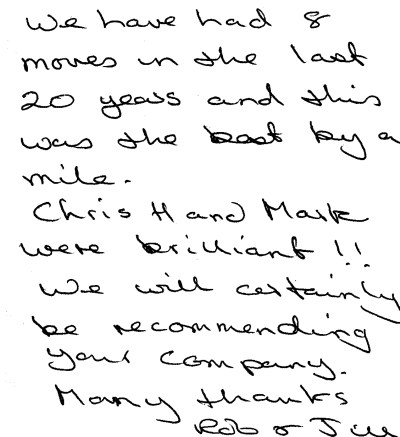 We have had 8
moves in the last
20 years and this
was the best by a
mile.
Chris H and Mark
were brilliant !!
We will certainly
be recommending
your company.
Many thanks
Rob & Jill